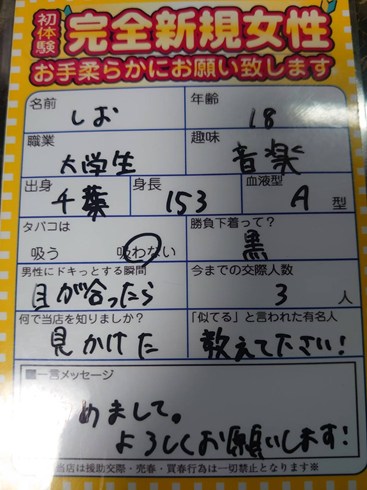 初体験 完全新規女性
お手柔らかにお願い致します
名前 しお 年齢 18
職業 大学生 趣味 音楽
出身 千葉 身長 153 血液型 A 型
タバコは 吸う 吸わない 勝負下着って? 黒
男性にドキっとする瞬間 目が合ったら 今までの交際人数 3 人
何で当店を知りましたか? 見かけた 「似てる」と言われた有名人 教えて下さい!
■一言メッセージ
めまして。
よろしくお願いします!
当店は援助交際・売春・買春行為は一切禁止となります※